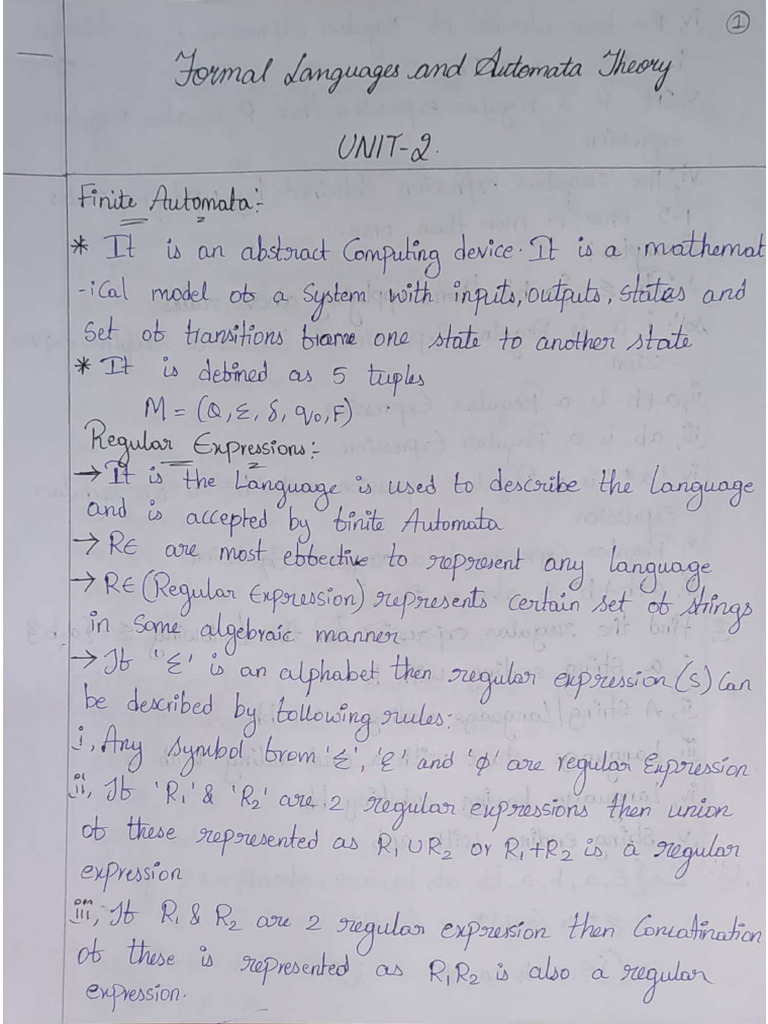 1
Formal Languages and Automata Theory
UNIT-2.
Finite Automata:-
* It is an abstract Computing device. It is a mathemat
-ical model of a System with inputs, outputs, states and
Set of transitions frame one state to another state
* It is defined as 5 tuples
M = (Q, Σ, δ, q₀, F)
Regular Expressions:-
→ It is the Language is used to describe the language
and is accepted by finite Automata
→ RE are most effective to represent any language
→ RE (Regular Expression) represents certain set of strings
in some algebraic manner
→ If 'Σ' is an alphabet then regular expression(s) can
be described by following rules:
i, Any symbol from 'Σ', 'ε' and 'φ' are regular Expression
ii, If 'R₁' & 'R₂' are 2 regular expressions then union
of these represented as R₁ ∪ R₂ or R₁+R₂ is a regular
expression
iii, If R₁ & R₂ are 2 regular expression then Concatination
of these is represented as R₁R₂ is also a regular
expression.